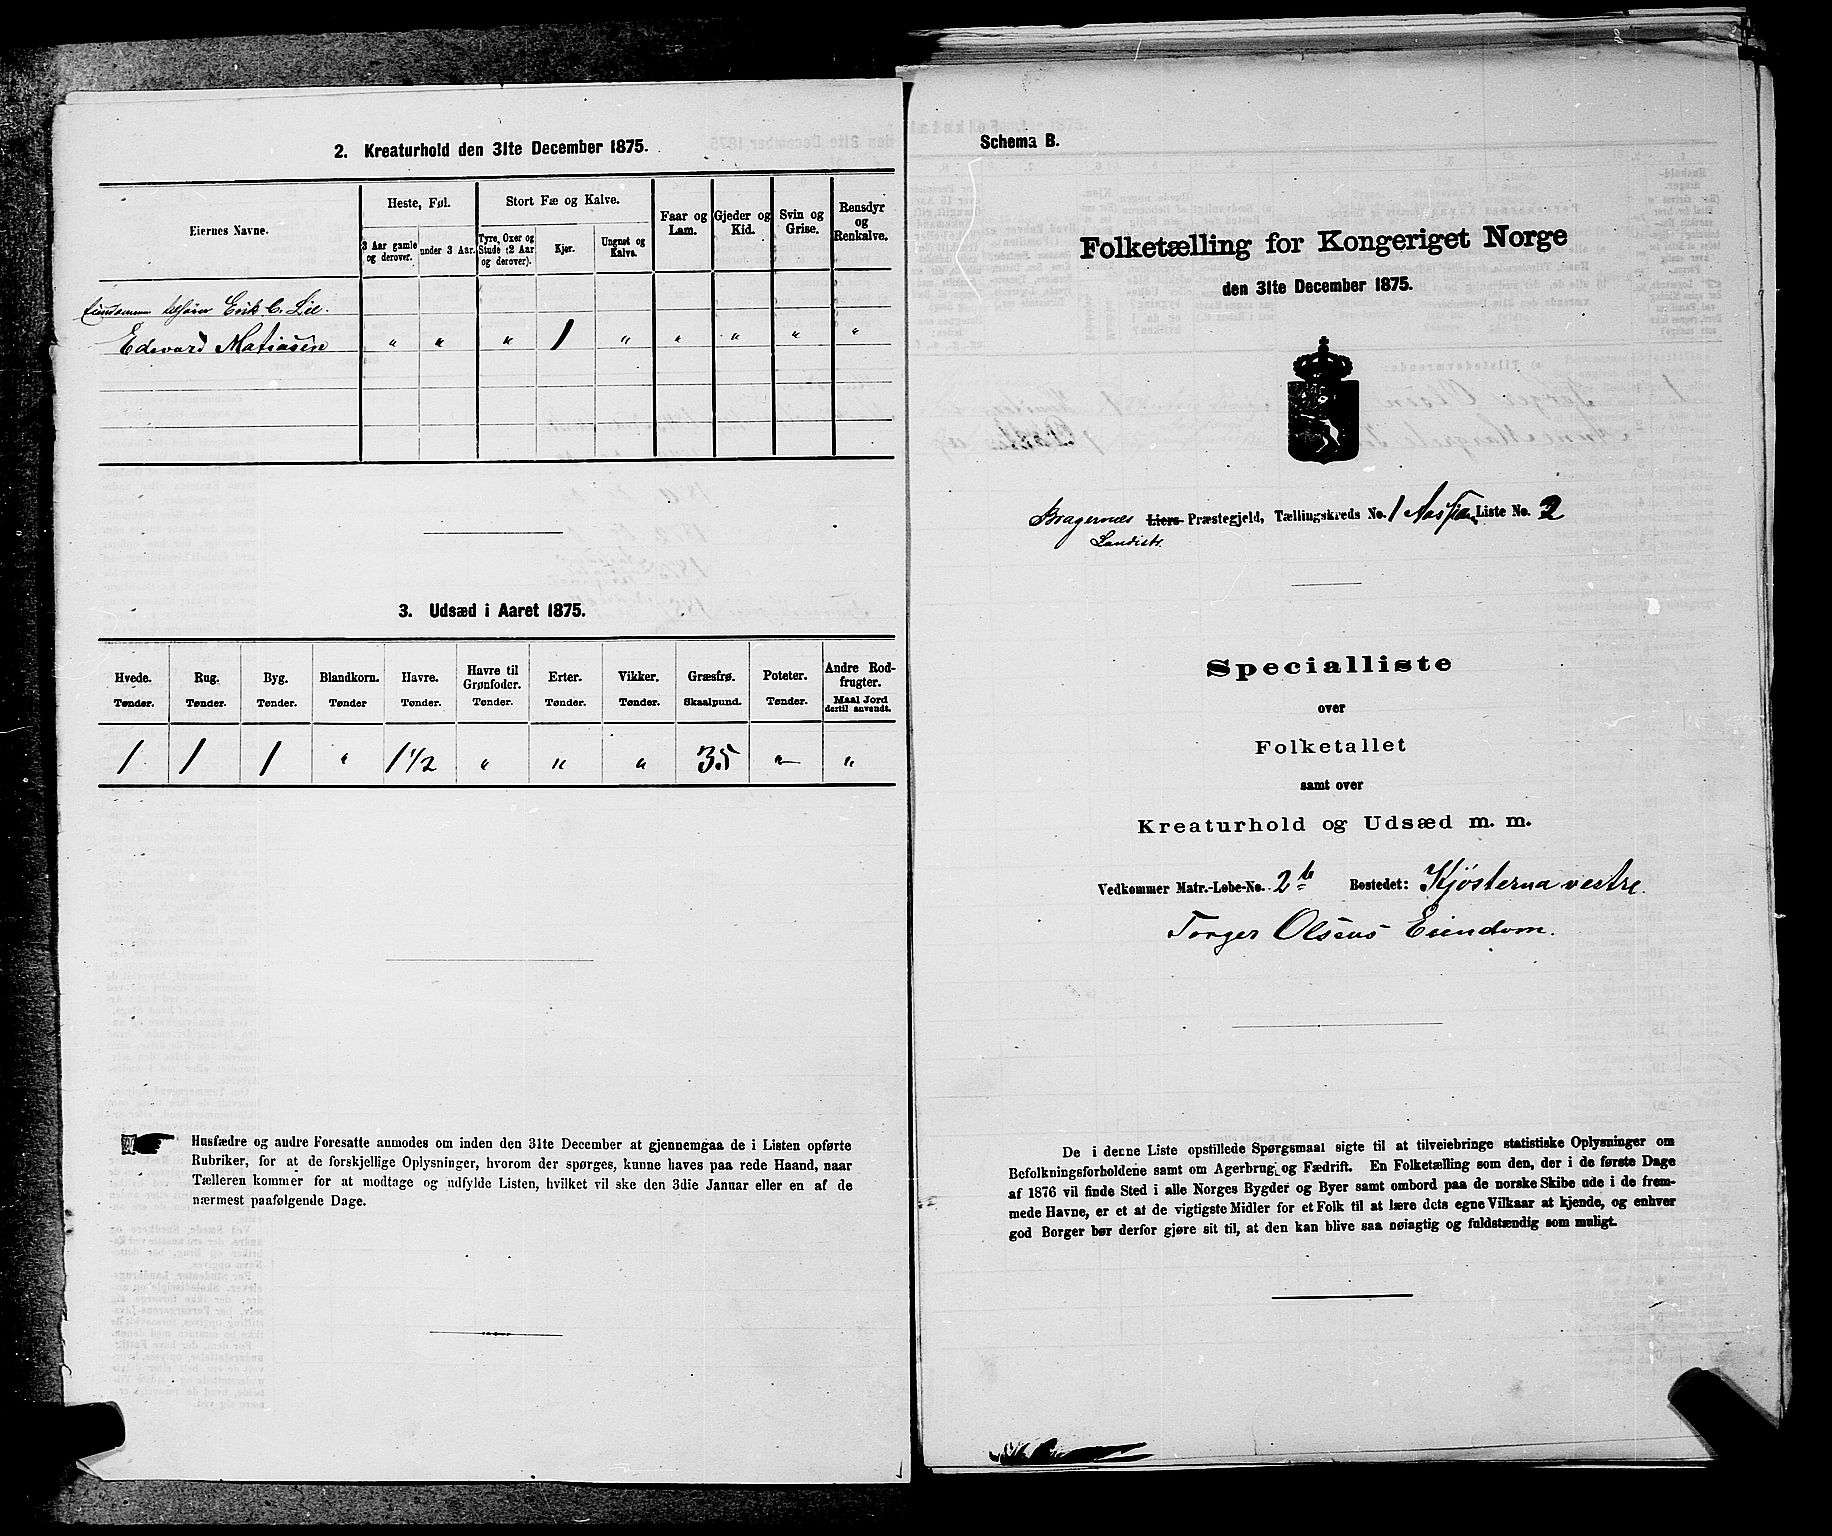 2. Kreaturhold den 31te December 1875.
Eiernes Navne.
Heste, Føl.
Stort Fæ og Kalve.
Faar og Lam.
Gjeder og Kid.
Svin og Grise.
Rensdyr og Renkalve.
3 Aar gamle og derover.
under 3 Aar.
Tyre, Oxer og Stude (2 Aar og derover).
Kjør.
Ungnøt og Kalve.
Erik C. Lie.
Edevard Matiasen " " " 1 " " " " "
3. Udsæd i Aaret 1875.
Hvede. Rug. Byg. Blandkorn. Havre. Havre til Grønfoder. Erter. Vikker. Græsfrø. Poteter. Andre Rodfrugter.
Tønder. Tønder. Tønder. Tønder Tønder. Tønder. Tønder. Tønder. Skaalpund. Tønder. Maal Jord dertil anvendt.
1 1 1 " 1 1/2 " " " 35 " "
Husfædre og andre Foresatte anmodes om inden den 31te December at gjennemgaa de i Listen opførte
Rubriker, for at de forskjellige Oplysninger, hvorom der spørges, kunne haves paa rede Haand, naar
Tælleren kommer for at modtage og udfylde Listen, hvilket vil ske den 3die Januar eller en af de
nærmest paafølgende Dage.
Schema B.
Folketælling for Kongeriget Norge
den 31te December 1875.
Bragernæs Liers Præstegjeld, Tællingskreds No. 1 Liste No. 2
Landistr.
Specialliste
over
Folketallet
samt over
Kreaturhold og Udsæd m. m.
Vedkommer Matr.-Løbe-No. 2b Bostedet: Kjøsterna vestre.
Torger Olsens Eiendom.
De i denne Liste opstillede Spørgsmaal sigte til at tilveiebringe statistiske Oplysninger om
Befolkningsforholdene samt om Agerbrug og Fædrift. En Folketælling som den, der i de første Dage
af 1876 vil finde Sted i alle Norges Bygder og Byer samt ombord paa de norske Skibe ude i de frem-
mede Havne, er et af de vigtigste Midler for et Folk til at lære dets egne Vilkaar at kjende, og enhver
god Borger bør derfor gjøre sit til, at den kan blive saa nøiagtig og fuldstændig som muligt.